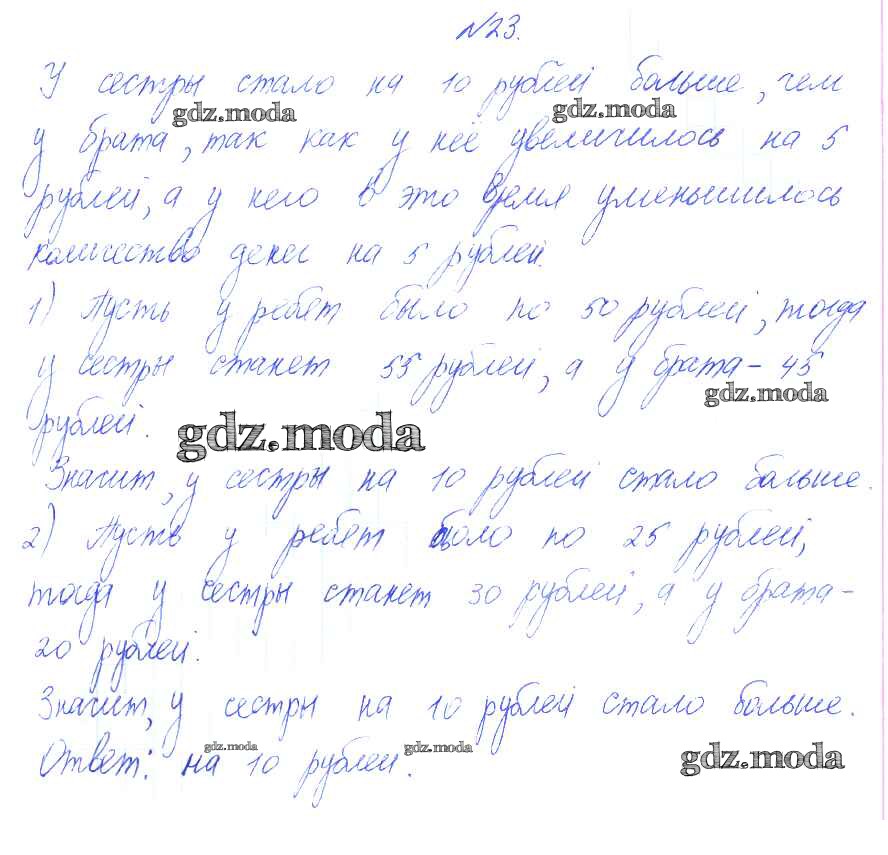 №23.
У сестры стало на 10 рублей больше, чем
gdz.moda gdz.moda
у брата, так как у неё увеличилось на 5
рублей, а у него в это время уменьшилось
количество денег на 5 рублей.
1) Пусть у ребят было по 50 рублей, тогда
у сестры станет 55 рублей, а у брата - 45
gdz.moda
рублей.
gdz.moda
Значит, у сестры на 10 рублей стало больше.
2) Пусть у ребят было по 25 рублей,
тогда у сестры станет 30 рублей, а у брата -
20 рублей.
Значит, у сестры на 10 рублей стало больше.
gdz.moda gdz.moda gdz.moda
Ответ: на 10 рублей.